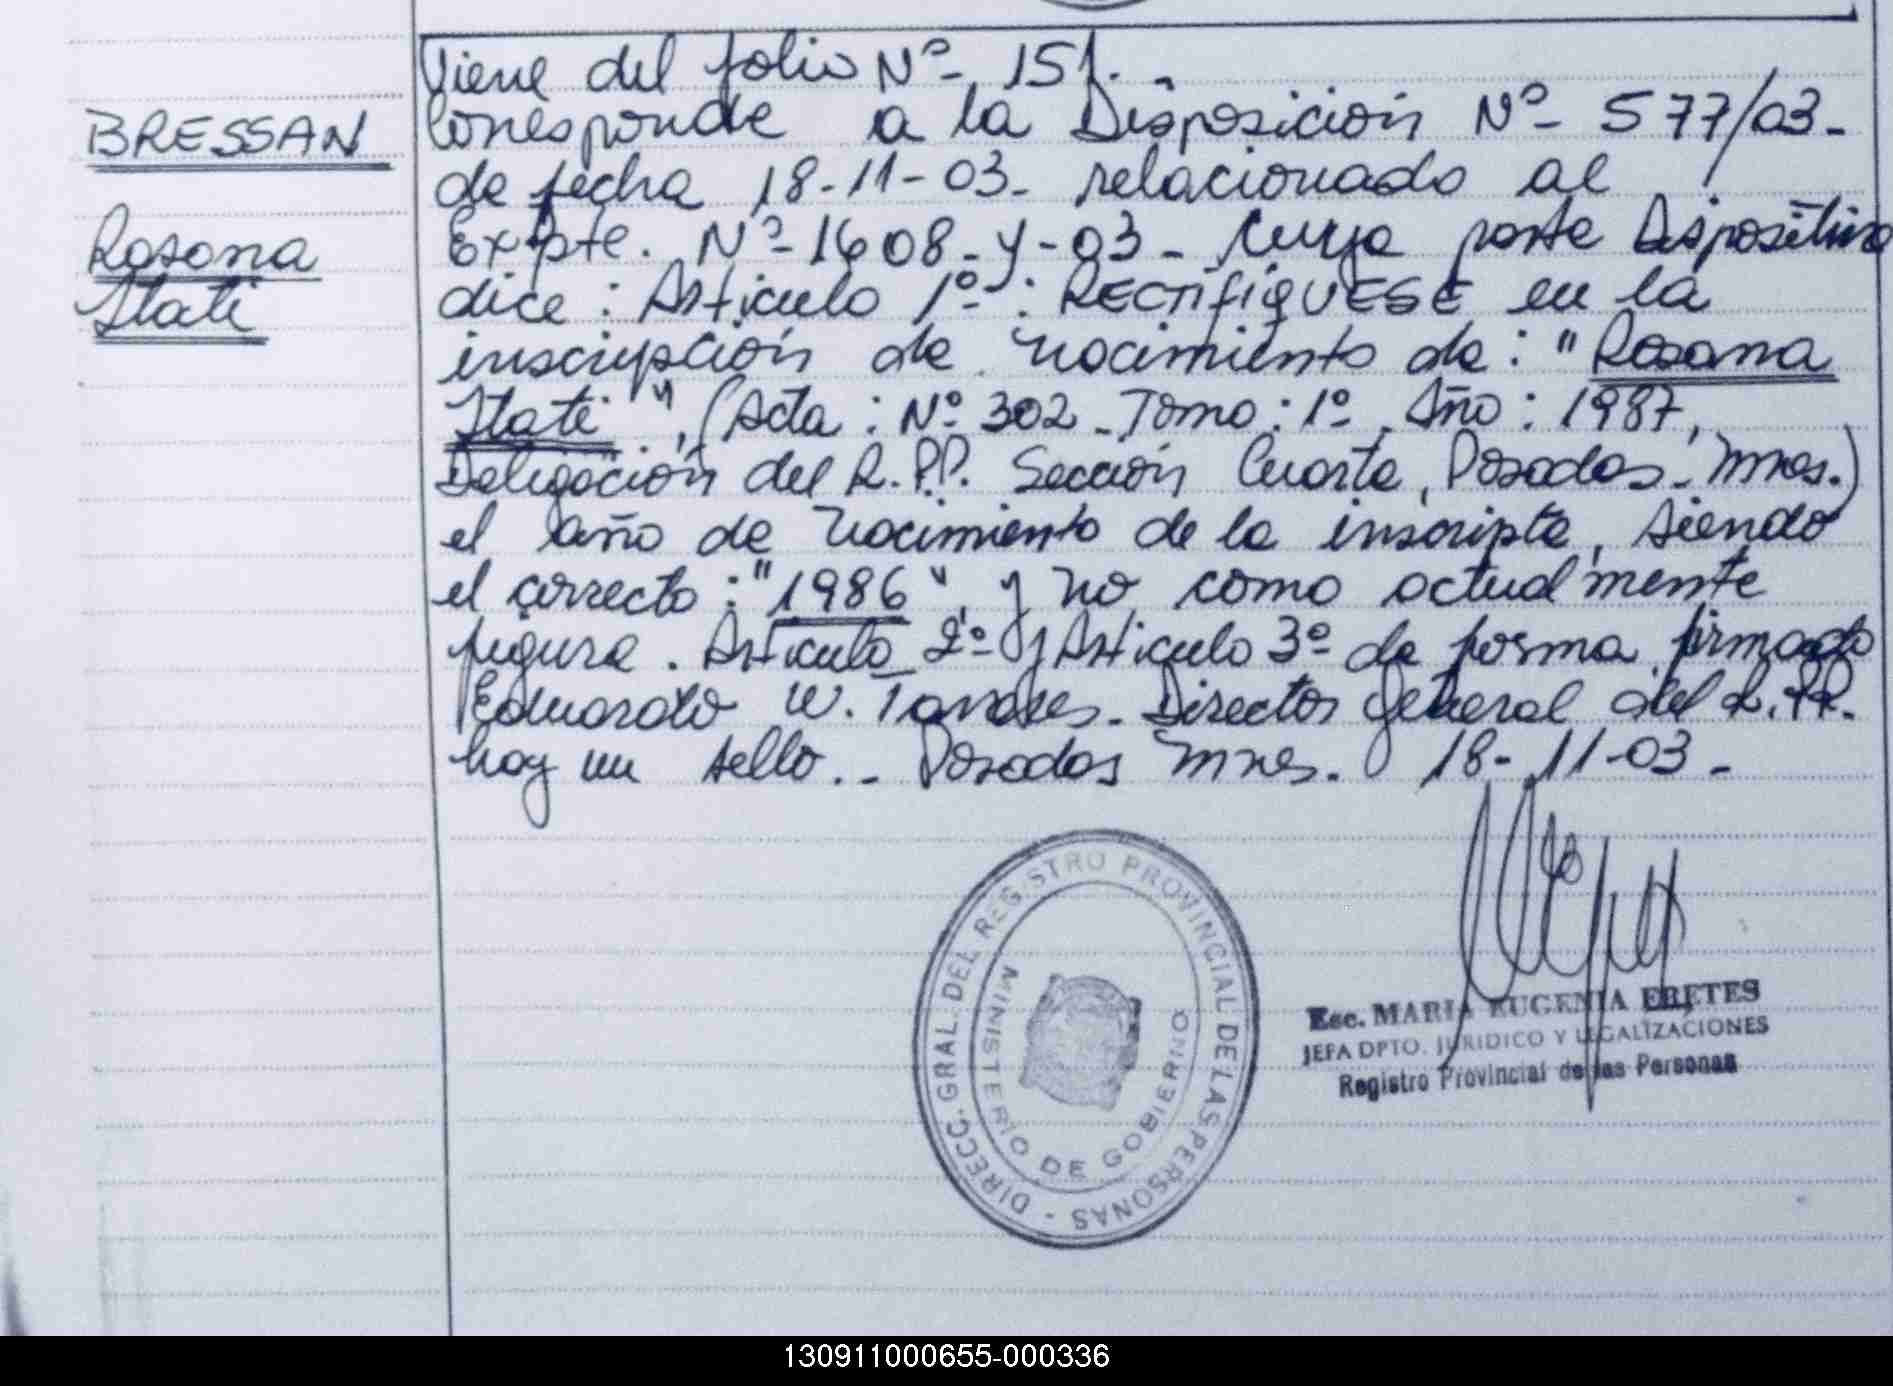 BRESSAN
Rosana
Itati
Viene del folio Nº 151.-
Corresponde a la Disposición Nº 577/03-
de fecha 18-11-03- relacionado al
Expte. Nº 1608-Y-03- cuya parte Dispositiva
dice: Artículo 1º: RECTIFIQUESE en la
inscripción de nacimiento de: "Rosana
Itati", (Acta: Nº 302 - Tomo: 1º, Año: 1987,
Delegación del R.P.P. Sección Cuarta, Posadas - Mnes.)
el año de nacimiento de la inscripta, siendo
el correcto: "1986", y no como actualmente
figura. Artículo 2º y Artículo 3º de forma firmado
Eduardo W. - Director General del R.P.P.
hay un sello.- Posadas Mnes. 18-11-03-
DIRECC. GRAL. DEL REGISTRO PROVINCIAL DE LAS PERSONAS -
MINISTERIO DE GOBIERNO
Esc. MARIA EUGENIA ERETES
JEFA DPTO. JURIDICO Y LEGALIZACIONES
Registro Provincial de las Personas
130911000655-000336